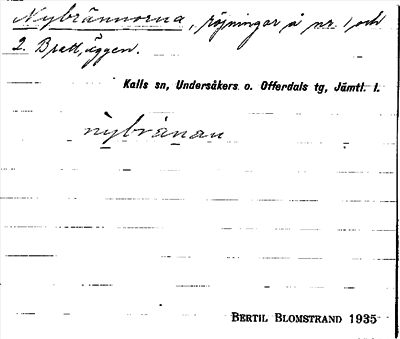 Nybrännorna, röjningar å nr. 1 och
2. Bratt,äggen.
Kalls sn, Undersåkers o. Offerdals tg, Jämtl. l.
nybränan
BERTIL BLOMSTRAND 1935